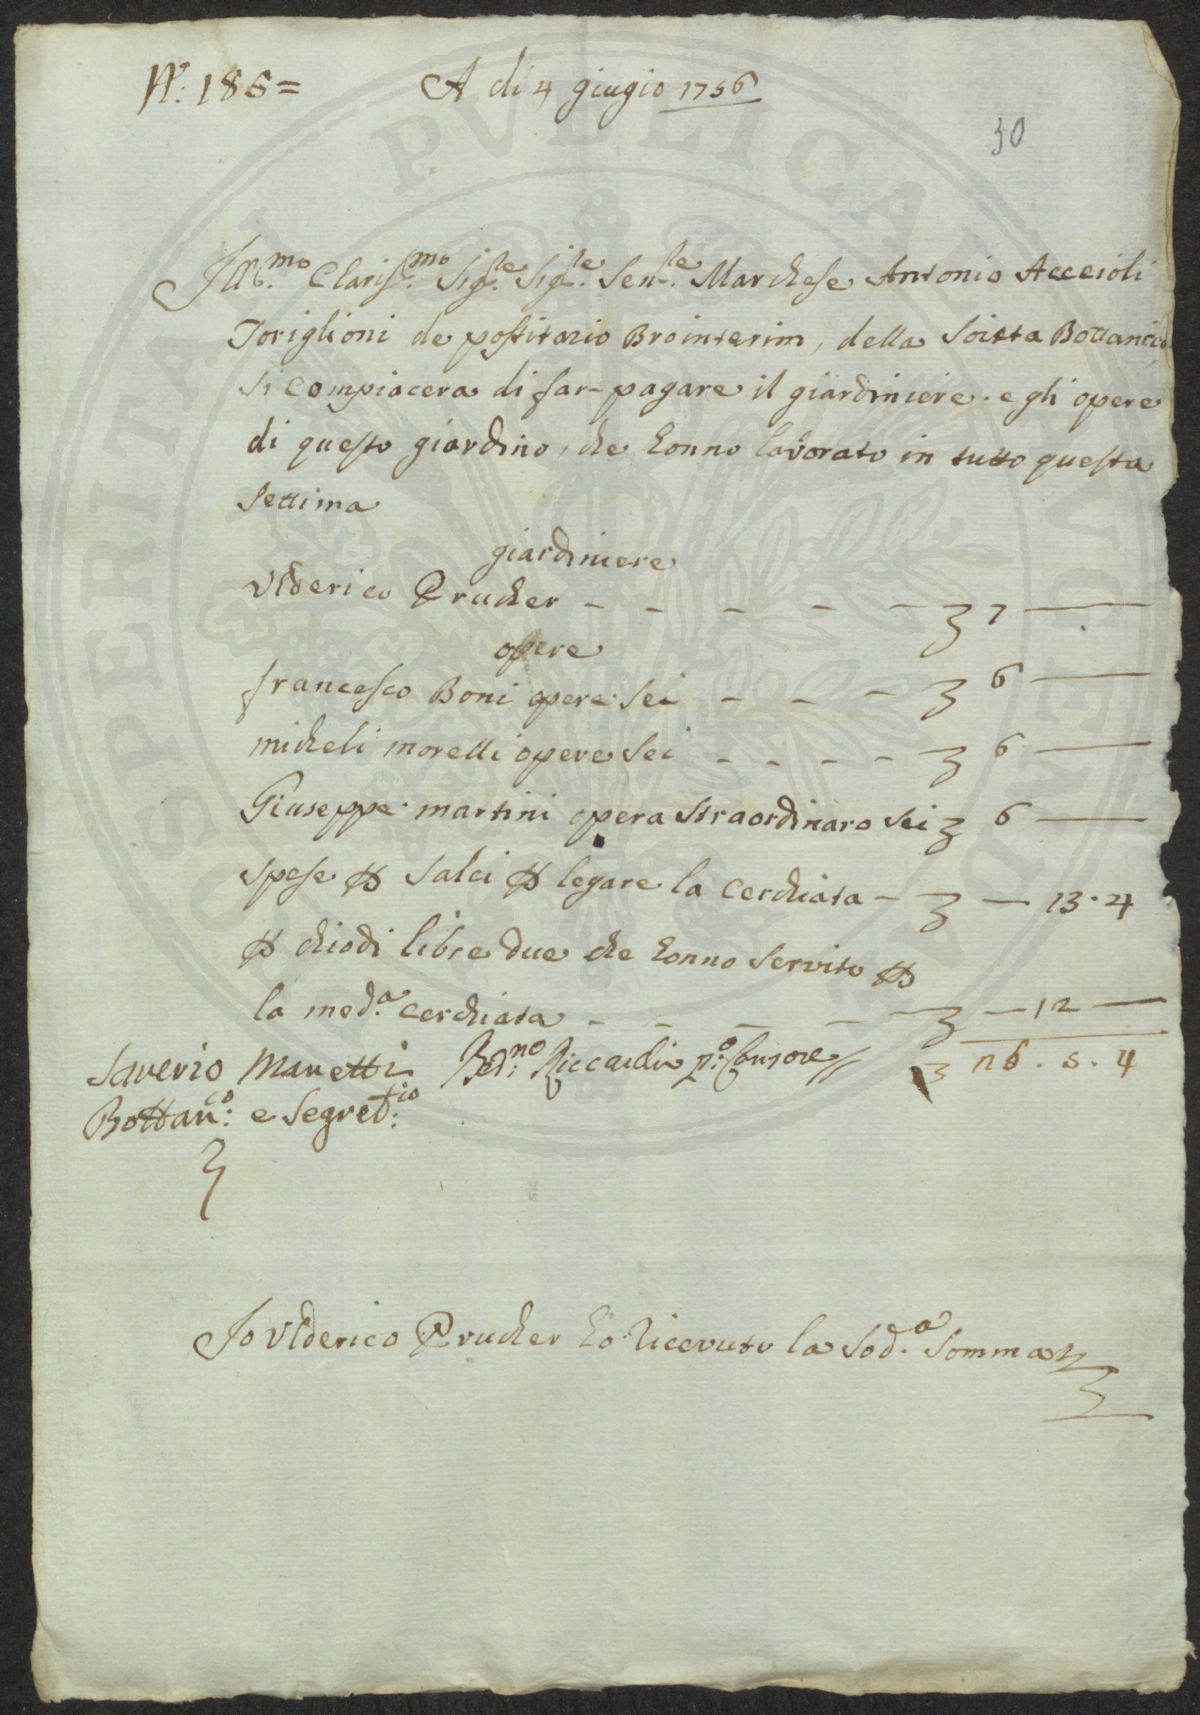 N.: 185 =
A di 4 giugio 1756
30
Ill.mo Clariss.mo Sig.re Sig.re Sen.re Marchese Antonio Acceioli
Toriglioni de postitario Brointerim, della Soietta Bottanica
si compiacera di far pagare il giardiniere. e gli opere
di questo giardino, che honno lavorato in tutto questa
settima
giardiniere
Vlderico Prucher - - - - - 7 —
opere
francesco Boni opere sei - - - 6 —
micheli morelli opere sei - - - - 6 —
Giuseppe martini opera straordinaro sei 6 —
spese p salci p legare la cerchiata - — 13.4
p chiodi libre due che honno servito p
la med.a cerchiata - - - - - — 12 —
Saverio Manetti Bed.no Riccardi p.o Censore 26.5.4
Bottan.co e Segret.rio
Io Vlderico Prucher ho riceuuto la sod.a somma
OPERE PVBLICA